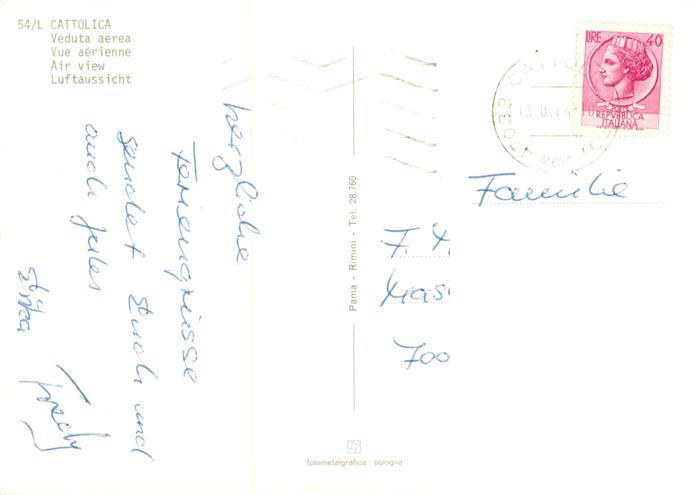 54/L CATTOLICA
Veduta aerea
Vue aérienne
Air view
Luftaussicht
herzliche
Feriengrüsse
sendet Euch und
auch Jules
Pama - Rimini - Tel. 28.760
fotometalgrafica - bologna
LIRE 40
POSTE
REPVBBLICA
ITALIANA
CATTOL
Familie
F. M.
Mas
700